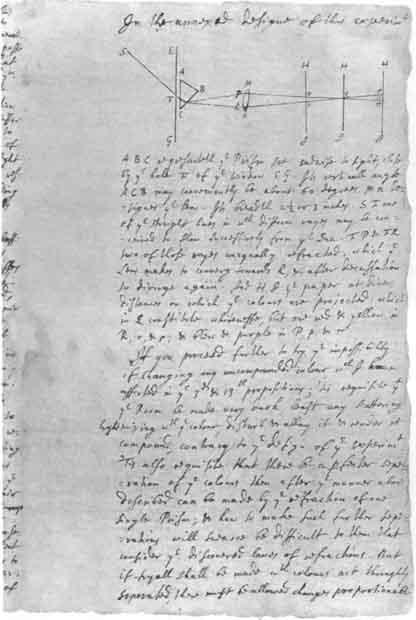 In the annexed designe of this experim
S E
A B M H H H
T P
C N R
G
A B C representeth yͤ Prism set endwise to sight, close
by yͤ hole F of yͤ window E G. Its verticall angle
A C B may conveniently be about 60 degrees. M N de-
signes yͤ Lens. Its breadth 2½ or 3 inches. S F one
of yͤ streight lines in wᶜʰ difform rayes may be con-
ceived to flow successively from yͤ Sun. F P & F R
two of those rayes unequally refracted, which yͤ
Lens makes to converge towards Q, & after decussation
to diverge again. And H I yͤ paper at divers
distances on which yͤ colours are projected, which
in Q constitute whitenesse, but are red & yellow in
R, r, & ρ, & blew & purple in P, p, & π
If you proceed further to try yͤ impossibility
of changing any uncompounded colour wᶜʰ I have
asserted in yͤ 3ᵈ & 13ᵗʰ propositions, 'tis requisite yᵗ
yͤ Room be made very dark least any scattering
light mixing wᵗʰ yͤ colour disturb & allay it & render it
compound, contrary to yͤ designe of yͤ experimᵗ
'Tis also requisite that there be a perfecter sepa-
ration of yͤ colours then after yͤ manner above
described can be made by yͤ refraction of one
single Prism; & how to make such further sepa-
rations will scarce be difficult to them that
consider yͤ discovered laws of refractions. But
if tryall shall be made wᵗʰ colours not throughly
separated, there must be allowed changes proportionable